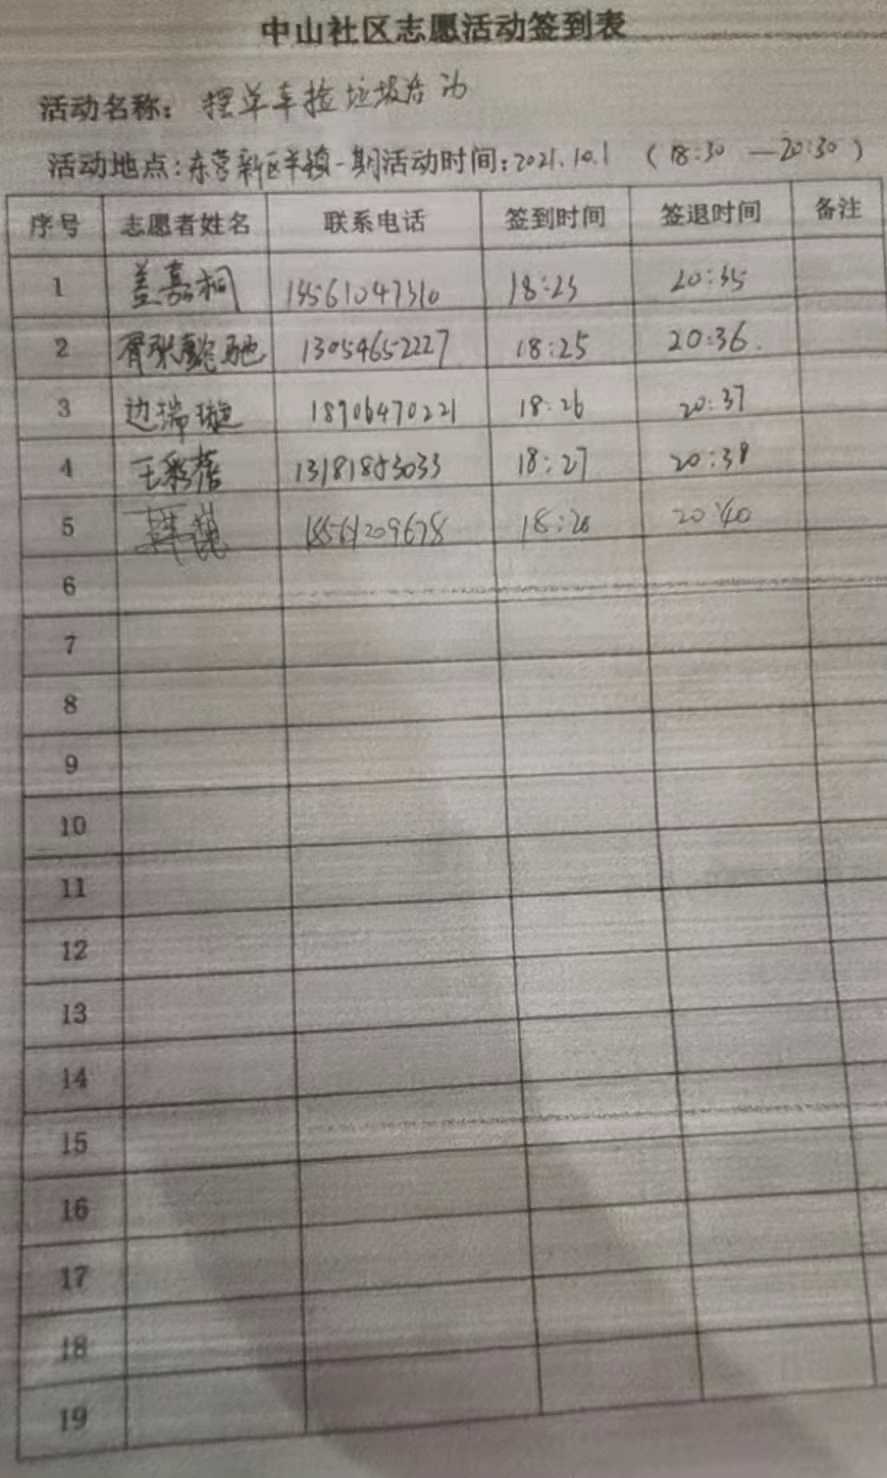 中山社区志愿活动签到表
活动名称: 摆单车捡垃圾活动
活动地点:东营新区半镇一期活动时间:2021.10.1 (18:30 —20:30)
序号 志愿者姓名 联系电话 签到时间 签退时间 备注
1 盖嘉桐 15561047310 18:23 20:35
2 13054652227 18:25 20:36.
3 边瑞璇 18706470221 18:26 20:37
4 王彩蓓 13181853033 18:27 20:38
5 18561209678 18:28 20:40
6
7
8
9
10
11
12
13
14
15
16
17
18
19